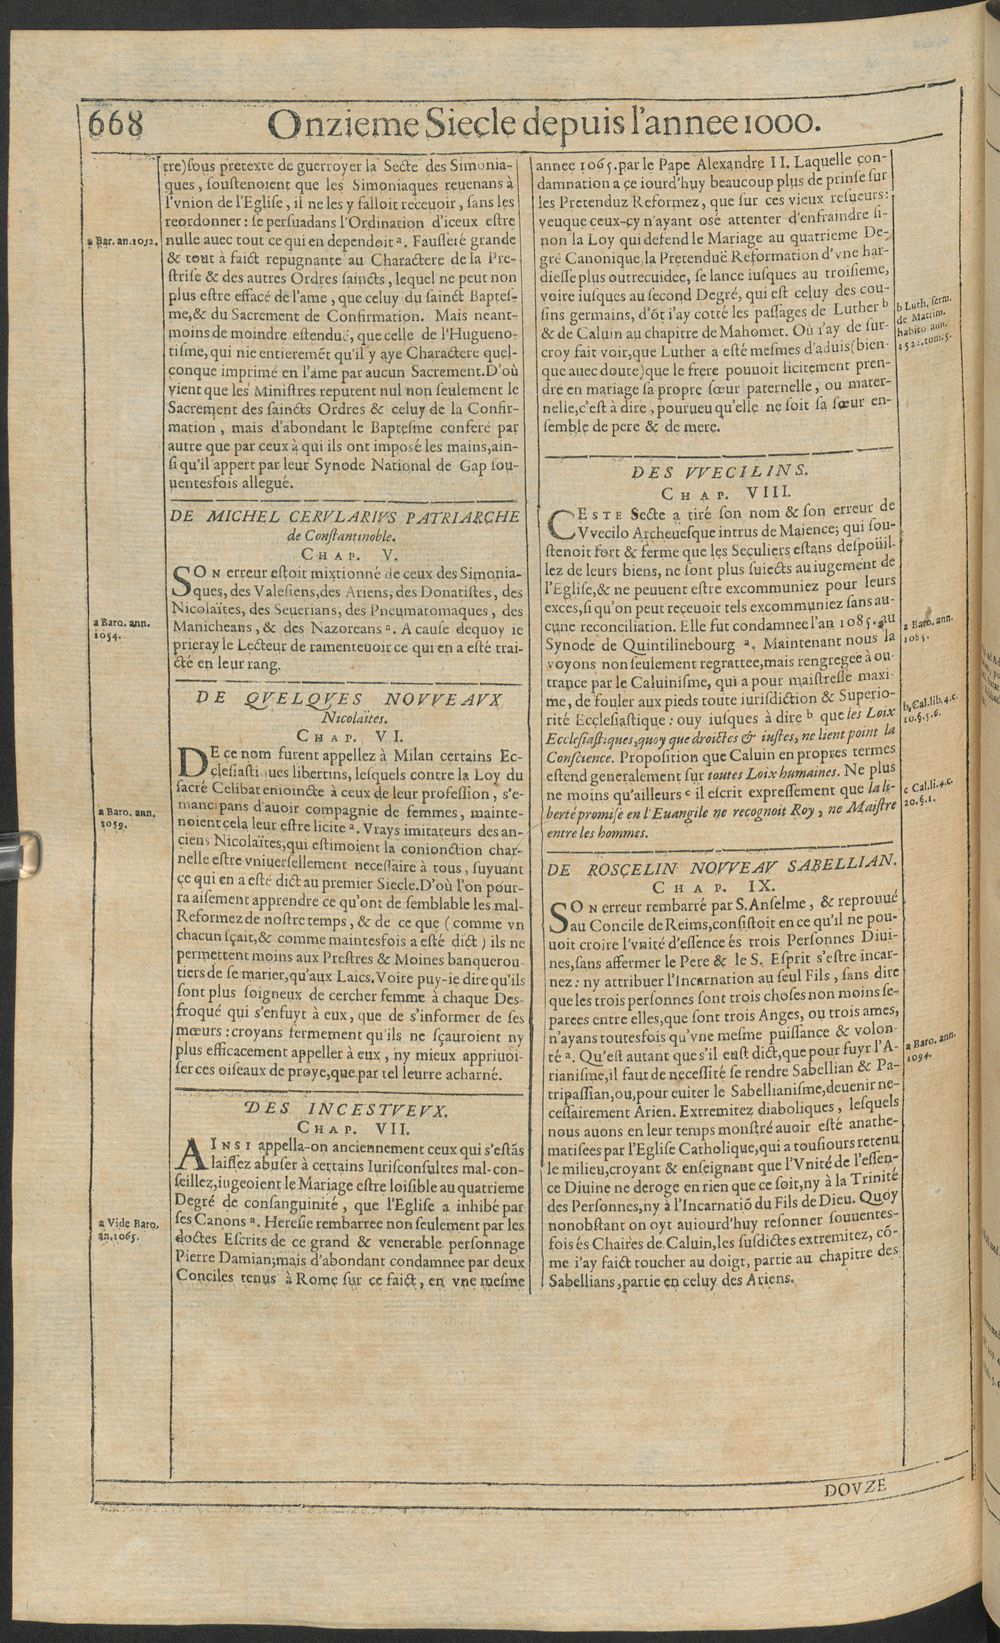 668
Onzieme Siecle depuis l'annee 1000.
tre) sous pretexte de guerroyer la Secte des Simonia-
ques, soustenoient que les Simoniaques reuenans à
l'vnion de l'Eglise, il ne les y falloit receuoir, sans les
reordonner: se persuadans l'Ordination d'iceux estre
nulle auec tout ce qui en dependoit ª. Fausseté grande
& tout à faict repugnante au Charactere de la Pre-
strise & des autres Ordres saincts, lequel ne peut non
plus estre effacé de l'ame, que celuy du sainct Baptes-
me, & du Sacrement de Confirmation. Mais neant-
moins de moindre estenduë, que celle de l'Hugueno-
tisme, qui nie entieremēt qu'il y aye Charactere quel-
conque imprimé en l'ame par aucun Sacrement. D'où
vient que les Ministres reputent nul non seulement le
Sacrement des saincts Ordres & celuy de la Confir-
mation, mais d'abondant le Baptesme conferé par
autre que par ceux à qui ils ont imposé les mains, ain-
si qu'il appert par leur Synode National de Gap sou-
uentesfois allegué.
a Bar. an. 1052.
DE MICHEL CERVLARIVS PATRIARCHE
de Constantinoble.
CHAP. V.
SON erreur estoit mixtionné de ceux des Simonia-
ques, des Valesiens, des Ariens, des Donatistes, des
Nicolaïtes, des Seuerians, des Pneumatomaques, des
Manicheans, & des Nazoreans ª. A cause dequoy ie
prieray le Lecteur de ramenteuoir ce qui en a esté trai-
cté en leur rang.
a Baro. ann.
1054.
DE QVELQVES NOVVEAVX
Nicolaïtes.
CHAP. VI.
DE ce nom furent appellez à Milan certains Ec-
clesiastiques libertins, lesquels contre la Loy du
sacré Celibat enioincte à ceux de leur profession, s'e-
mancipans d'auoir compagnie de femmes, mainte-
noient cela leur estre licite ª. Vrays imitateurs des an-
ciens Nicolaïtes, qui estimoient la conionction char-
nelle estre vniuersellement necessaire à tous, suyuant
ce qui en a esté dict au premier Siecle. D'où l'on pour-
ra aisement apprendre ce qu'ont de semblable les mal-
Reformez de nostre temps, & de ce que (comme vn
chacun sçait, & comme maintesfois a esté dict) ils ne
permettent moins aux Prestres & Moines banquerou-
tiers de se marier, qu'aux Laics. Voire puy-ie dire qu'ils
sont plus soigneux de cercher femme à chaque Des-
froqué qui s'enfuyt à eux, que de s'informer de ses
mœurs: croyans fermement qu'ils ne sçauroient ny
plus efficacement appeller à eux, ny mieux appriuoi-
ser ces oiseaux de proye, que par tel leurre acharné.
a Baro. ann.
1059.
DES INCESTVEVX.
CHAP. VII.
AINSI appella-on anciennement ceux qui s'estās
laissez abuser à certains Iurisconsultes mal-con-
seillez, iugeoient le Mariage estre loisible au quatrieme
Degré de consanguinité, que l'Eglise a inhibé par
ses Canons ª. Heresie rembarree non seulement par les
doctes Escrits de ce grand & venerable personnage
Pierre Damian; mais d'abondant condamnee par deux
Conciles tenus à Rome sur ce faict, en vne mesme
a Vide Baro.
an. 1065.
annee 1065. par le Pape Alexandre II. Laquelle con-
damnation a ce iourd'huy beaucoup plus de prinse sur
les Pretenduz Reformez, que sur ces vieux resueurs:
veuque ceux-cy n'ayant osé attenter d'enfraindre si-
non la Loy qui defend le Mariage au quatrieme De-
gré Canonique, la Pretenduë Reformation d'vne har-
diesse plus outrecuidee, se lance iusques au troisieme,
voire iusques au second Degré, qui est celuy des cou-
sins germains, d'ōt i'ay cotté les passages de Luther b
& de Caluin au chapitre de Mahomet. Où i'ay de sur-
croy fait voir, que Luther a esté mesmes d'aduis (bien-
que auec doute) que le frere pouuoit licitement pren-
dre en mariage sa propre sœur paternelle, ou mater-
nelle, c'est à dire, pourueu qu'elle ne soit sa sœur en-
semble de pere & de mere.
b Luth. serm.
de Matrim.
habito ann.
1522. tom. 5.
DES VVECILINS.
CHAP. VIII.
CESTE Secte a tiré son nom & son erreur de
Vvecilo Archeuesque intrus de Maience; qui sou-
stenoit fort & ferme que les Seculiers estans despoüil-
lez de leurs biens, ne sont plus suiects au iugement de
l'Eglise, & ne peuuent estre excommuniez pour leurs
exces, si qu'on peut receuoir tels excommuniez sans au-
cune reconciliation. Elle fut condamnee l'an 1085. au
Synode de Quintilinebourg ª. Maintenant nous la
voyons non seulement regrattee, mais rengregee à ou-
trance par le Caluinisme, qui a pour maistresse maxi-
me, de fouler aux pieds toute iurisdiction & Superio-
rité Ecclesiastique: ouy iusques à dire b que les Loix
Ecclesiastiques, quoy que droictes & iustes, ne lient point la
Conscience. Proposition que Caluin en propres termes
estend generalement sur toutes Loix humaines. Ne plus
ne moins qu'ailleurs c il escrit expressement que la li-
berté promise en l'Euangile ne recognoit Roy, ne Maistre
entre les hommes.
a Baro. ann.
1085.
b Cal. lib. 4. c.
10. §. 5. 6.
c Cal. li. 4. c.
20. §. 1.
DE ROSCELIN NOVVEAV SABELLIAN.
CHAP. IX.
SON erreur rembarré par S. Anselme, & reprouué
au Concile de Reims, consistoit en ce qu'il ne pou-
uoit croire l'vnité d'essence és trois Personnes Diui-
nes, sans affermer le Pere & le S. Esprit s'estre incar-
nez: ny attribuer l'Incarnation au seul Fils, sans dire
que les trois personnes sont trois choses non moins se-
parees entre elles, que sont trois Anges, ou trois ames,
n'ayans toutesfois qu'vne mesme puissance & volon-
té ª. Qu'est autant que s'il eust dict, que pour fuyr l'A-
rianisme, il faut de necessité se rendre Sabellian & Pa-
tripassian, ou, pour euiter le Sabellianisme, deuenir ne-
cessairement Arien. Extremitez diaboliques, lesquels
nous auons en leur temps monstré auoir esté anathe-
matisees par l'Eglise Catholique, qui a tousiours retenu
le milieu, croyant & enseignant que l'Vnité de l'essen-
ce Diuine ne deroge en rien que ce soit, ny à la Trinité
des Personnes, ny à l'Incarnatiō du Fils de Dieu. Quoy
nonobstant on oyt auiourd'huy resonner souuentes-
fois és Chaires de Caluin, les susdictes extremitez, cō-
me i'ay faict toucher au doigt, partie au chapitre des
Sabellians, partie en celuy des Ariens.
a Baro. ann.
1094.
DOVZE